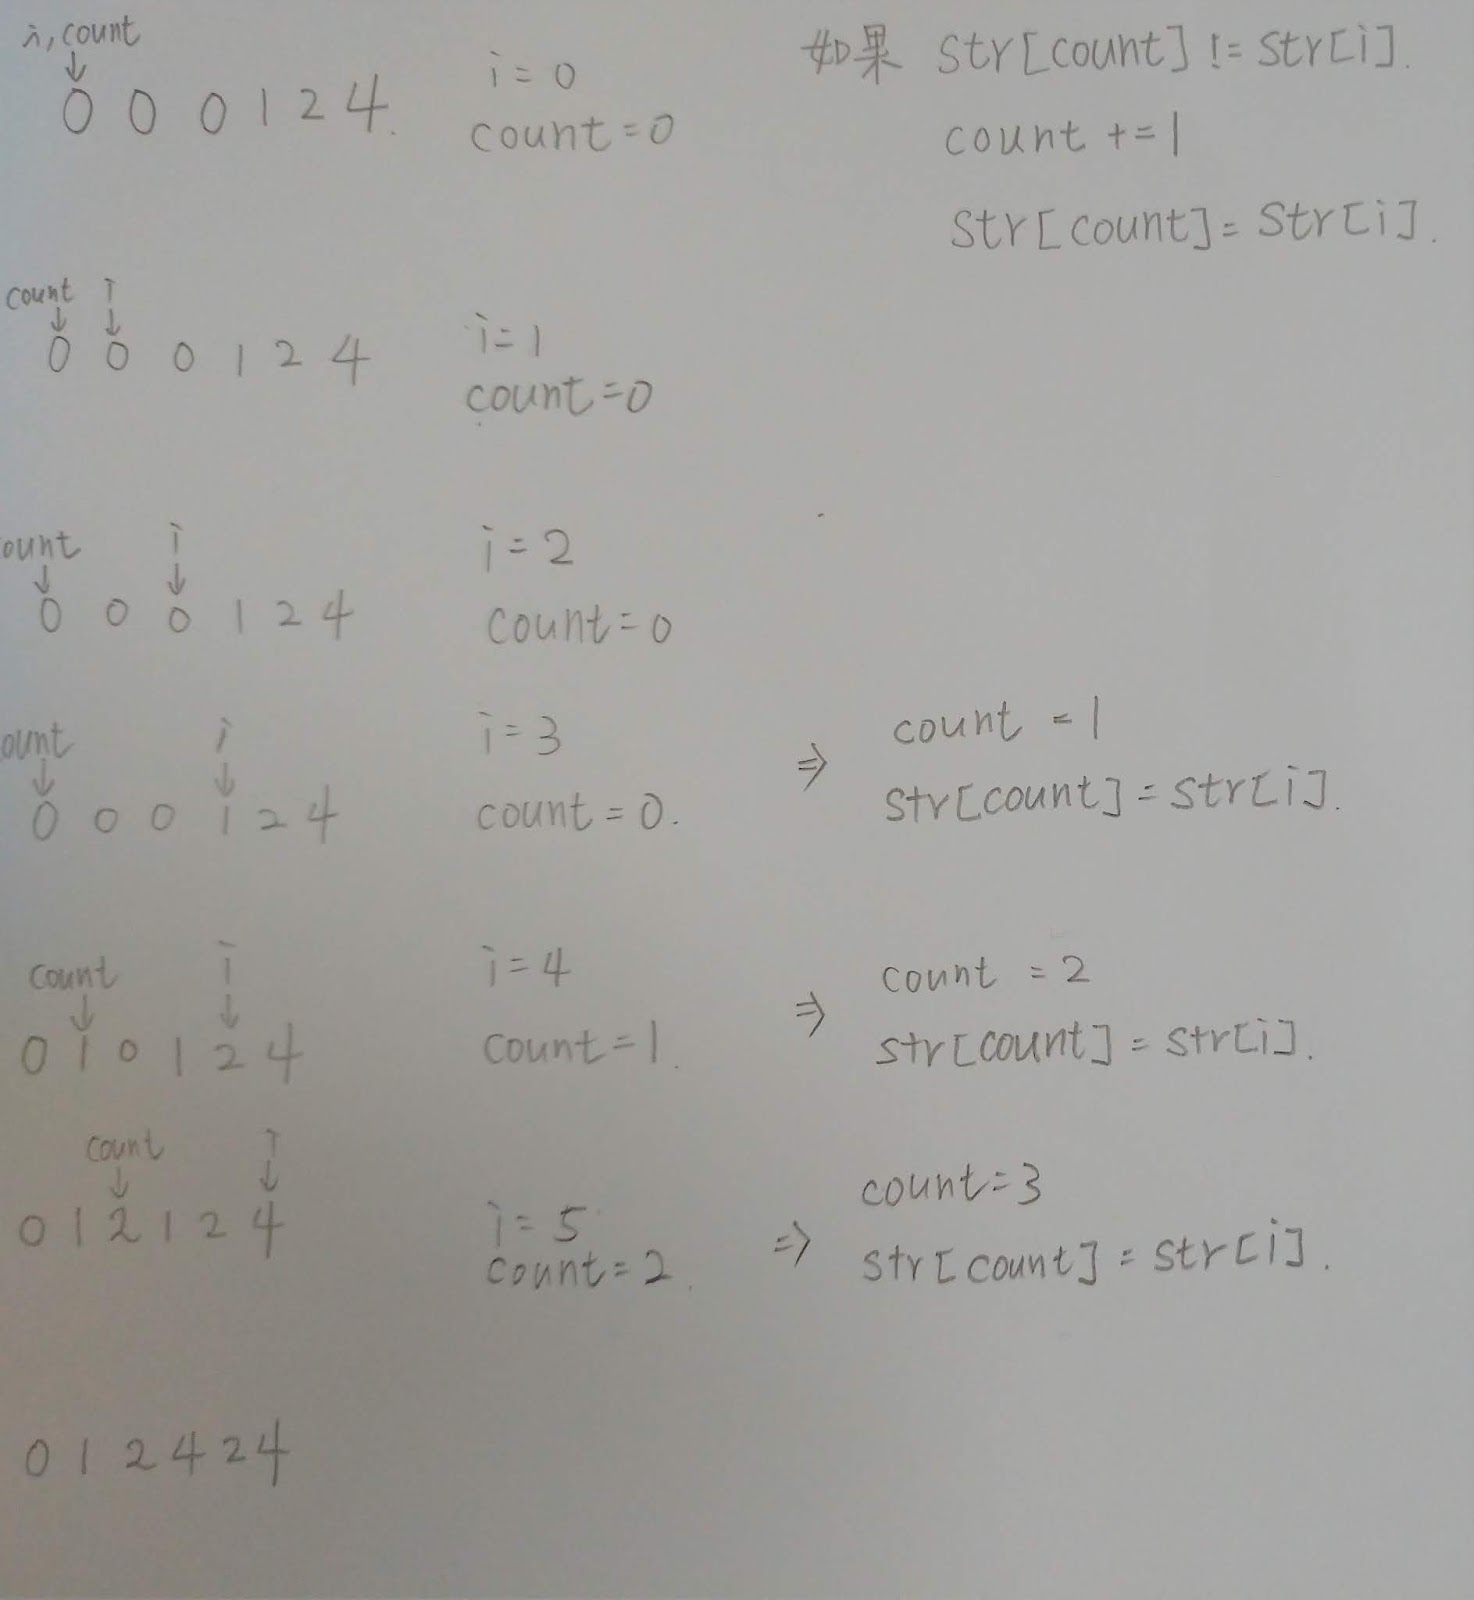 i, count
↓
0 0 0 1 2 4.
i = 0
count = 0
如果 str[count] != str[i].
count += 1
str[count] = str[i].
count i
↓ ↓
0 0 0 1 2 4
i = 1
count = 0
ount i
↓ ↓
0 0 0 1 2 4
i = 2
count = 0
ount i
↓ ↓
0 0 0 1 2 4
i = 3
count = 0.
⇒ count = 1
str[count] = str[i].
count i
↓ ↓
0 1 0 1 2 4
i = 4
count = 1.
⇒ count = 2
str[count] = str[i].
count i
↓ ↓
0 1 2 1 2 4
i = 5
count = 2.
⇒ count = 3
str[count] = str[i].
0 1 2 4 2 4